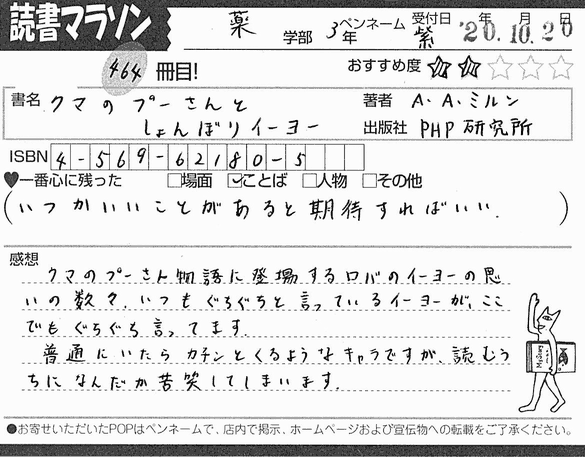 読書マラソン
薬 学部 3年 ペンネーム 紫 受付日 '20.10.20 年 月 日
464 冊目! おすすめ度 ★★☆☆☆
書名 クマのプーさんと 著者 A.A.ミルン
しょんぼりイーヨー 出版社 PHP研究所
ISBN 4-569-62180-5
♥一番心に残った □場面 ☑ことば □人物 □その他
(いつかいいことがあると期待すればいい.)
感想
クマのプーさん物語に登場するロバのイーヨーの思
いの数々.いつもぐちぐちと言っているイーヨーが、ここ
でもぐちぐち言ってます.
普通にいたらカチンとくるようなキャラですが、読むう
ちになんだか苦笑してしまいます.
●お寄せいただいたPOPはペンネームで、店内で掲示、ホームページおよび宣伝物への転載をご了承ください。